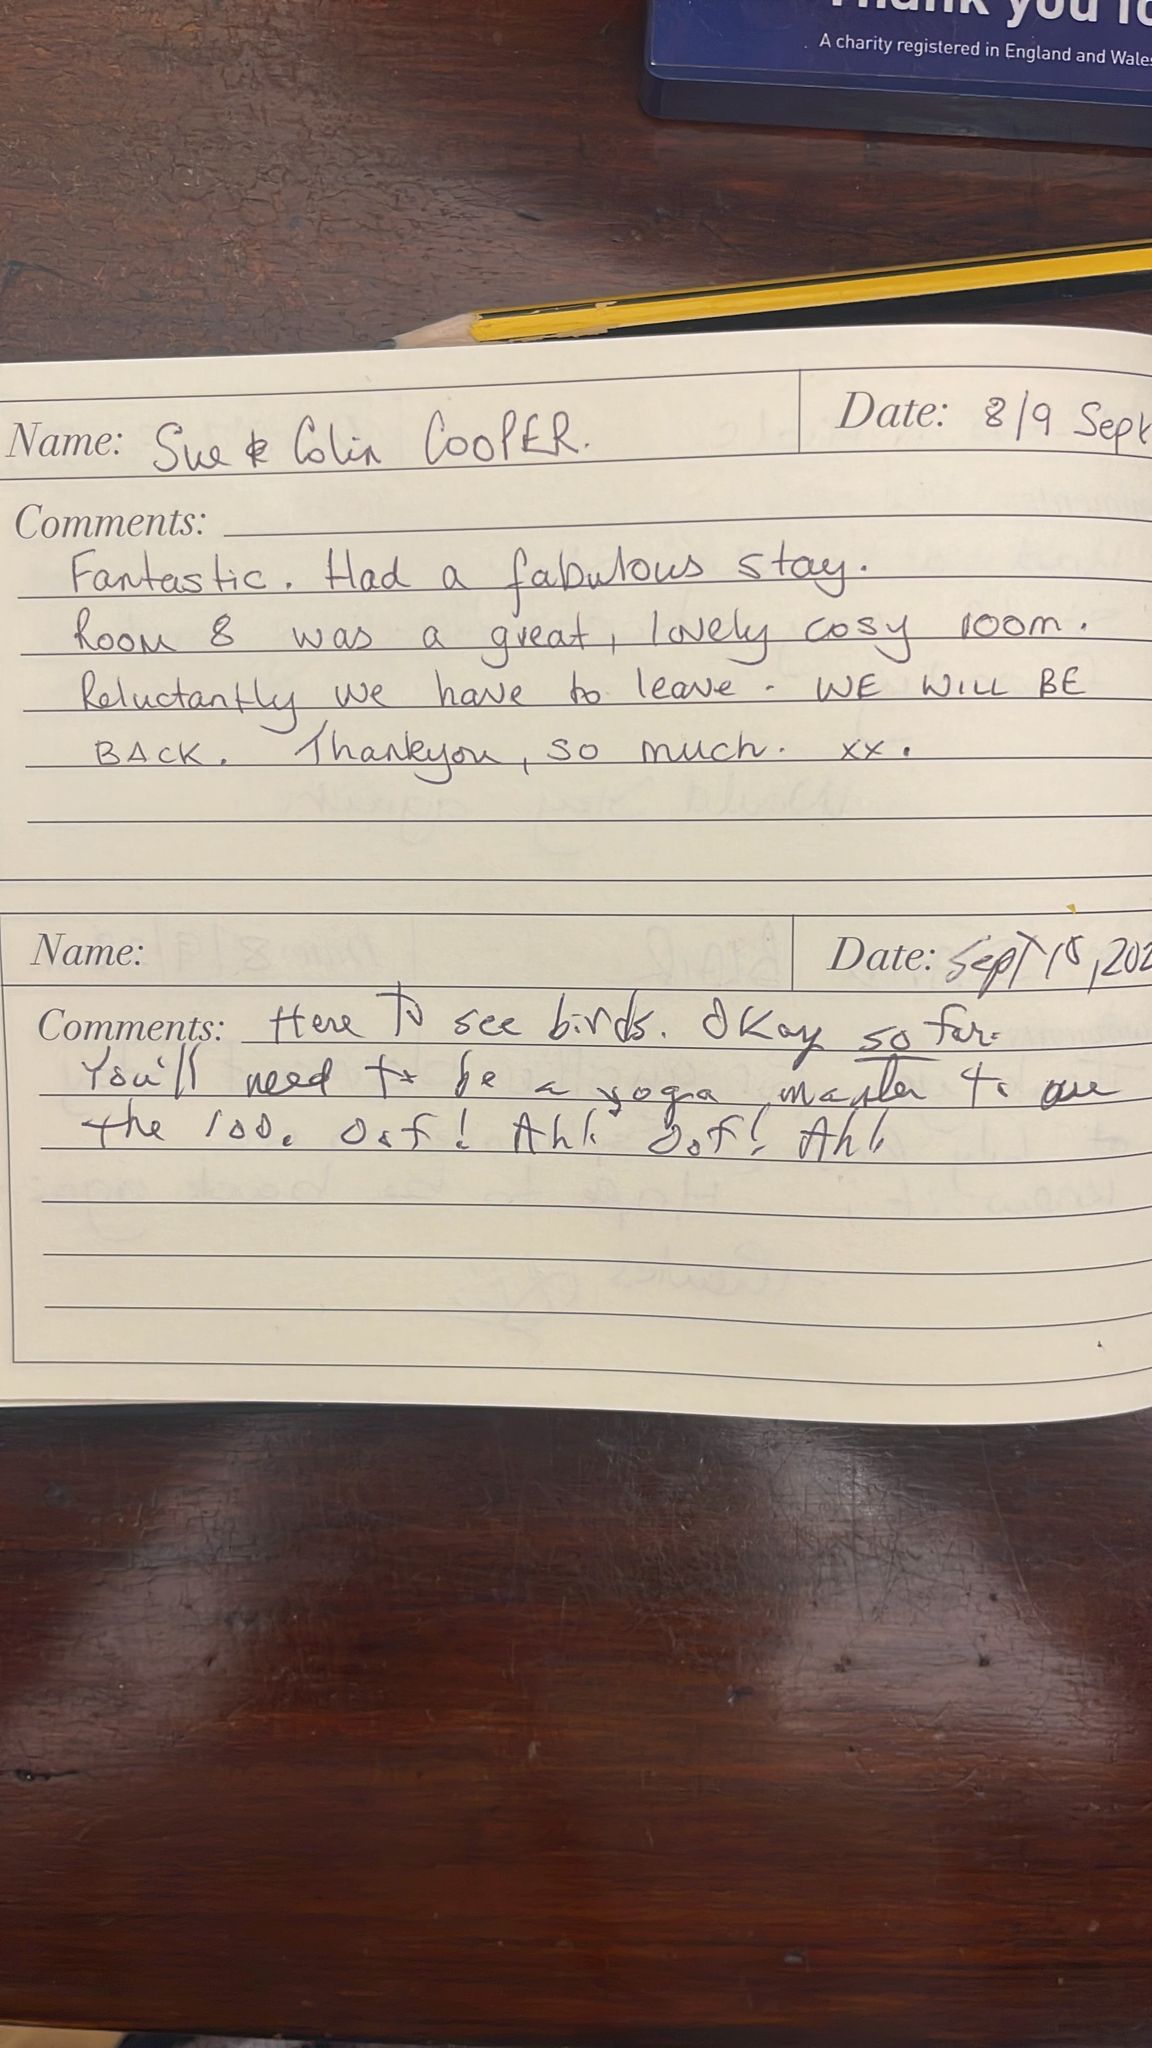 Thank you fo
A charity registered in England and Wales
Name: Sue & Colin COOPER.
Date: 8/9 Sept
Comments:
Fantastic. Had a fabulous stay.
Room 8 was a great, lovely cosy room.
Reluctantly we have to leave. WE WILL BE
BACK. Thankyou, so much. xx.
Name:
Date: Sept 18, 202
Comments: Here to see birds. Okay so far.
You'll need to be a yoga master to use
the loo. Oof! Ah! Oof! Ah!